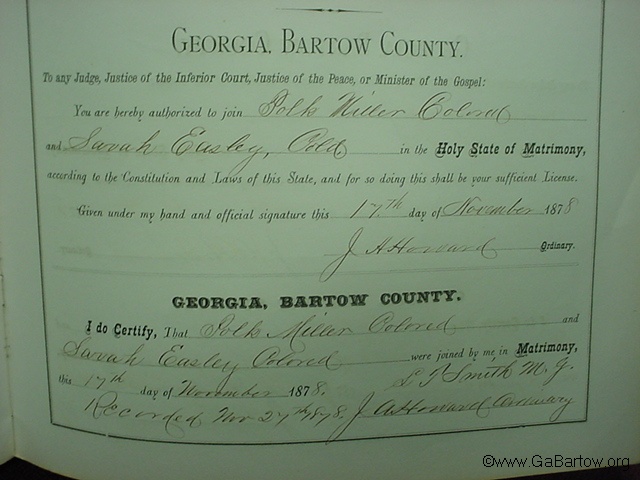 GEORGIA, BARTOW COUNTY.
To any Judge, Justice of the Inferior Court, Justice of the Peace, or Minister of the Gospel:
You are hereby authorized to join Polk Miller Colored
and Sarah Easley, Cold in the Holy State of Matrimony,
according to the Constitution and Laws of this State, and for so doing this shall be your sufficient License.
Given under my hand and official signature this 17th day of November 1878
J A Howard Ordinary.
GEORGIA, BARTOW COUNTY.
I do Certify, That Polk Miller Colored and
Sarah Easley Colored were joined by me, in Matrimony,
this 17th day of November 1878. Smith
Recorded Nov 27th 1878. J A Howard Ordinary
©www.GaBartow.org